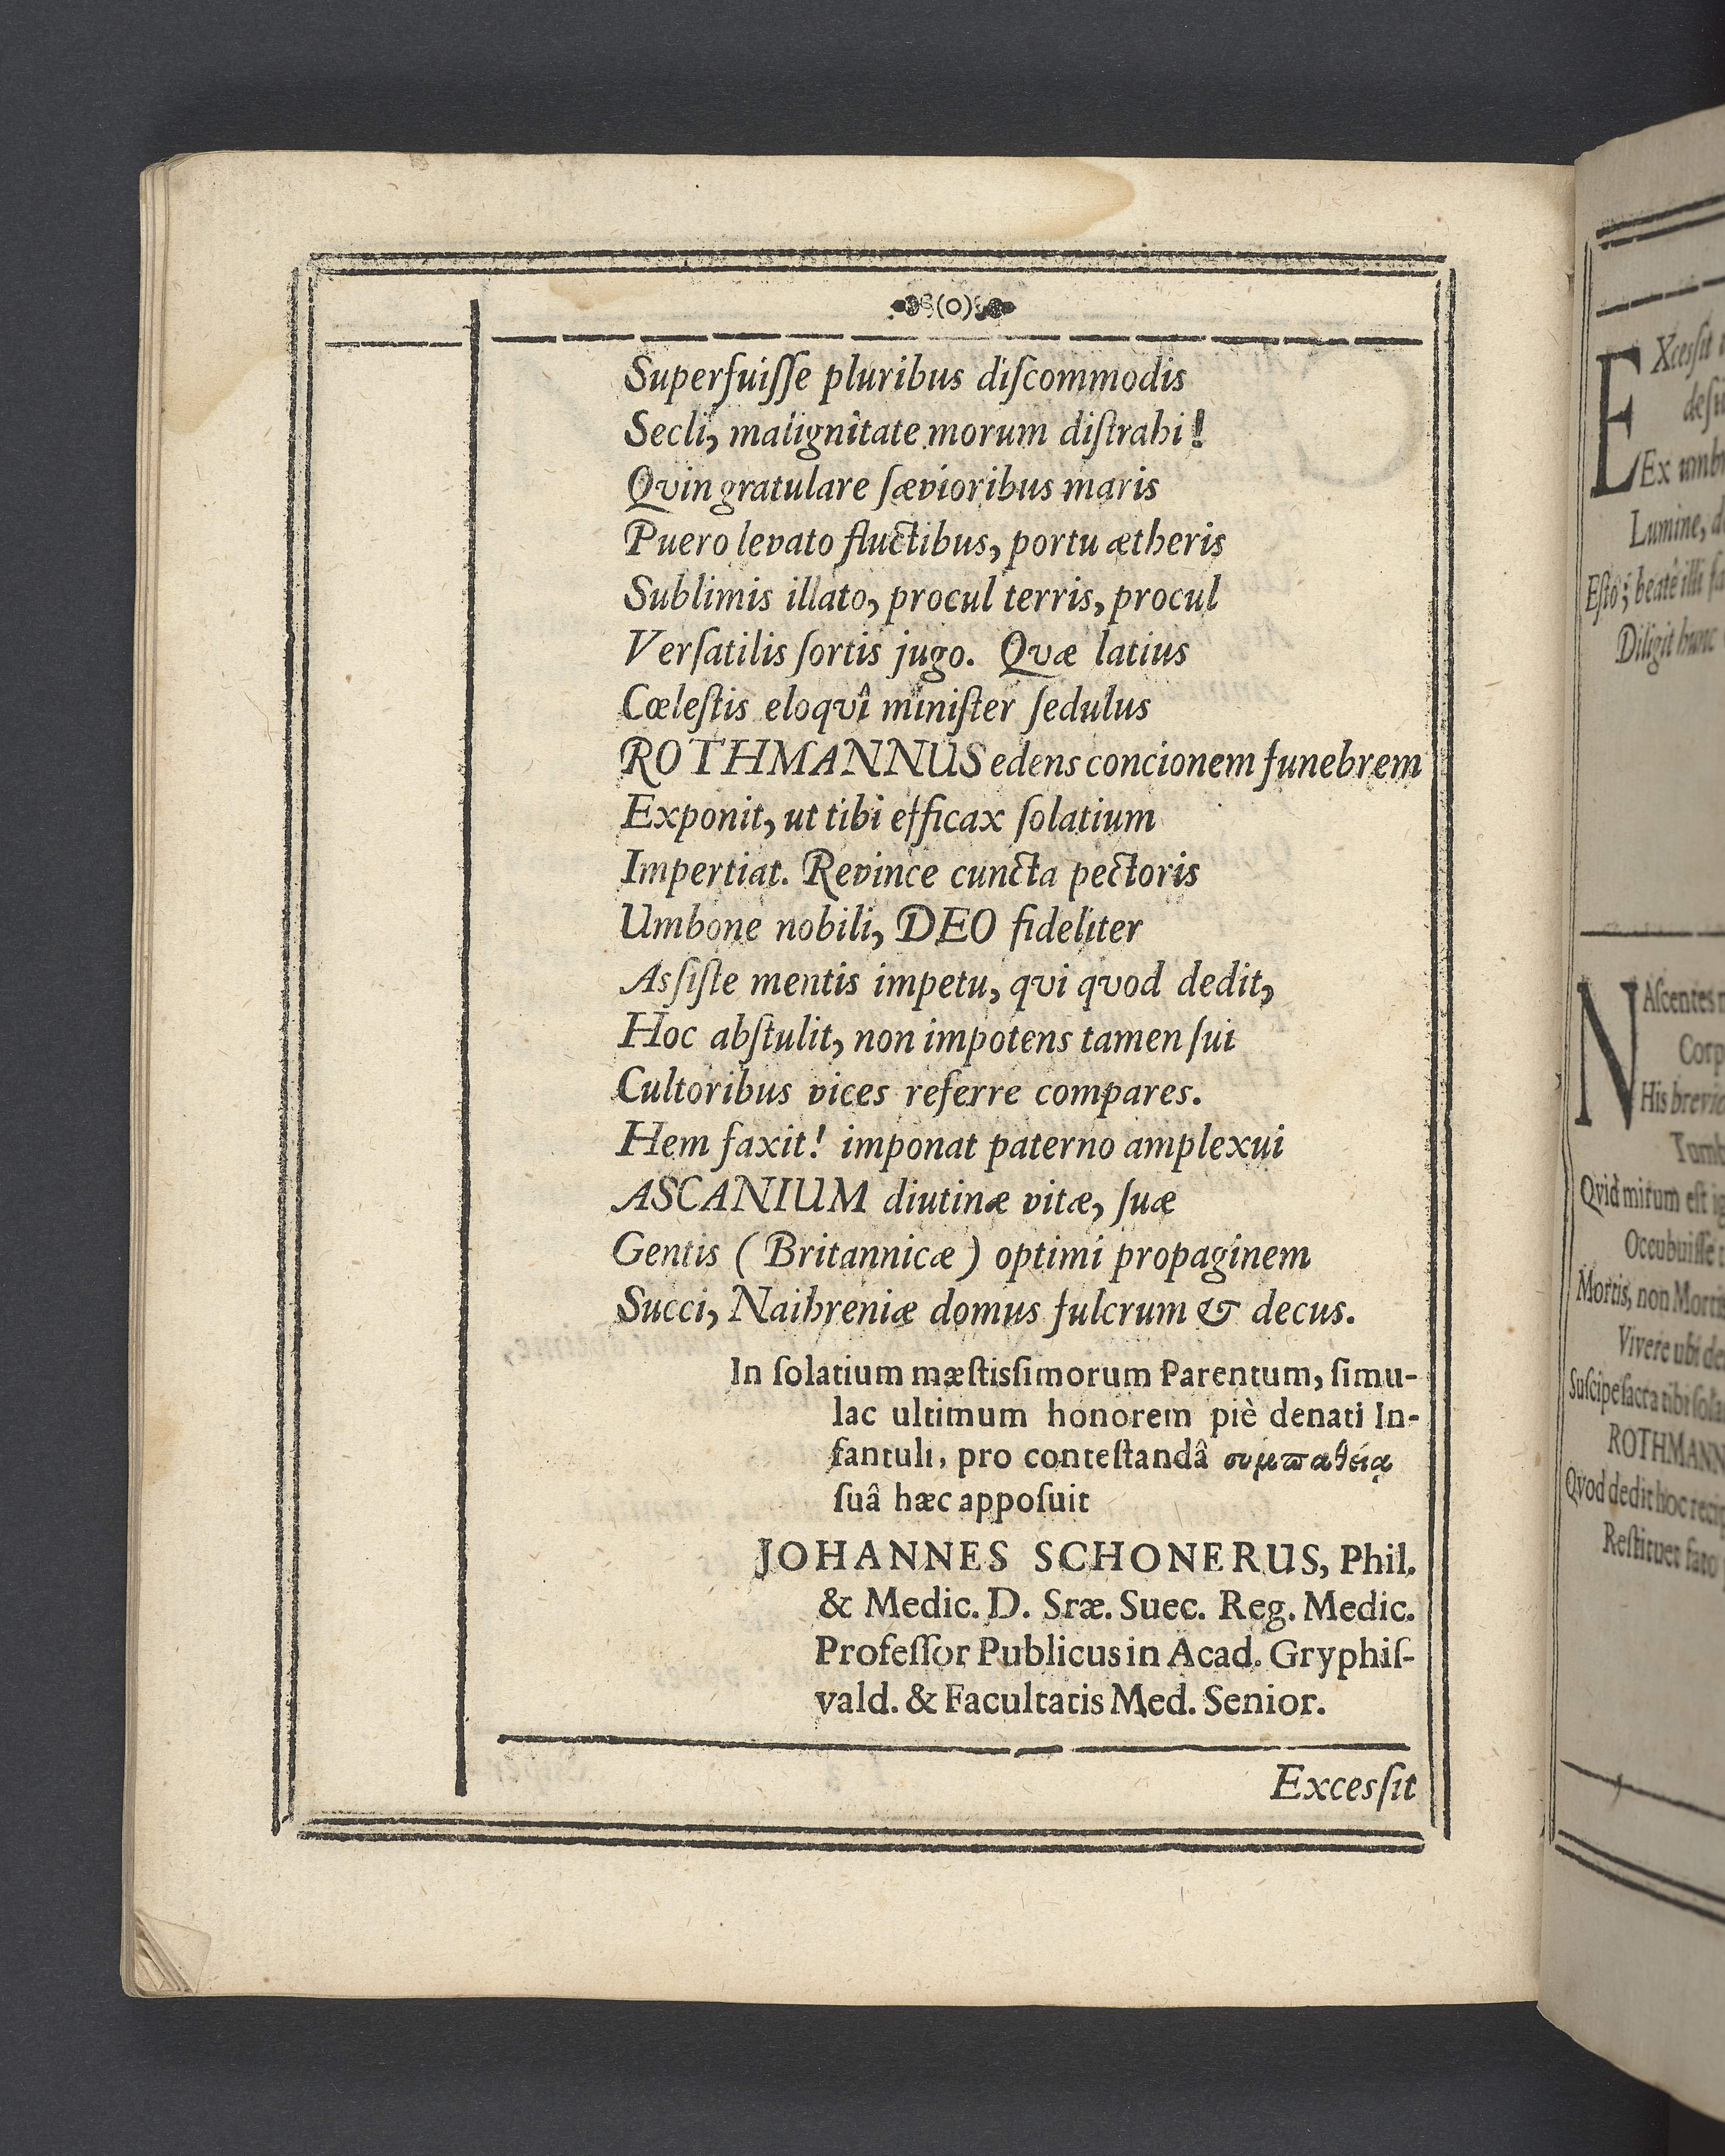 (o)
Superfuiſſe pluribus diſcommodis
Secli, malignitate morum diſtrahi!
Qvin gratulare ſævioribus maris
Puero levato fluctibus, portu ætheris
Sublimis illato, procul terris, procul
Verſatilis ſortis jugo. Qvæ latius
Cœleſtis eloqvî miniſter ſedulus
ROTHMANNUS edens concionem funebrem
Exponit, ut tibi efficax ſolatium
Impertiat. Revince cuncta pectoris
Umbone nobili, DEO fideliter
Asſiſte mentis impetu, qvi qvod dedit,
Hoc abſtulit, non impotens tamen ſui
Cultoribus vices referre compares.
Hem faxit! imponat paterno amplexui
ASCANIUM diutinæ vitæ, ſuæ
Gentis (Britannicæ) optimi propaginem
Succi, Naihreniæ domus fulcrum & decus.
In ſolatium mæſtisſimorum Parentum, ſimu-
lac ultimum honorem piè denati In-
fantuli, pro conteſtandâ συμπαθείᾳ
ſuâ hæc appoſuit
JOHANNES SCHONERUS, Phil.
& Medic. D. Sræ. Suec. Reg. Medic.
Profeſſor Publicus in Acad. Gryphiſ-
vald. & Facultatis Med. Senior.
Excesſit
EXcesſit
Ex
Lumine,
Eſto; beatè illi
Diligit hunc
NAſcentes
His
Qvid mirum eſt
Occubuiſſe
Mortis, non
Vivere ubi
Suſcipe ſacra tibi
Qvod dedit hoc
Reſtituet fato